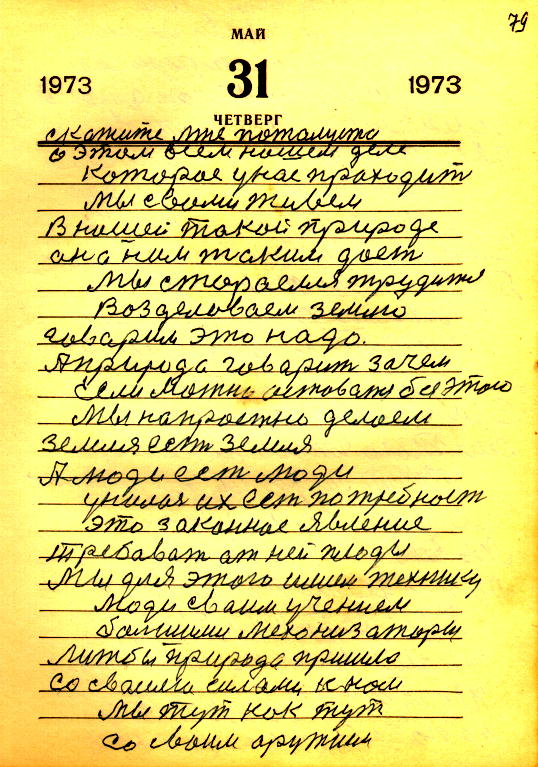 79
МАЙ
1973 31 1973
ЧЕТВЕРГ
скажите мне пожалуста
о этом всем нашем деле
которое у нас проходит
мы своми живем
В нашей такой природе
она ним таким дает
мы стораемся трудится
Возделоваем землю
говарим это надо.
А природа говарит зачем
Если можно астоватя без этого
мы напрастно делаем
земля ест земля
А люди ест люди
у них ест потребност
это законное явление
требават от ней плоды
Мы для этого имеем технику
люди сваим учением
болшими механизаторы
Лижбы природа пришла
со сваими силами к нам
мы тут как тут
со своим оружием